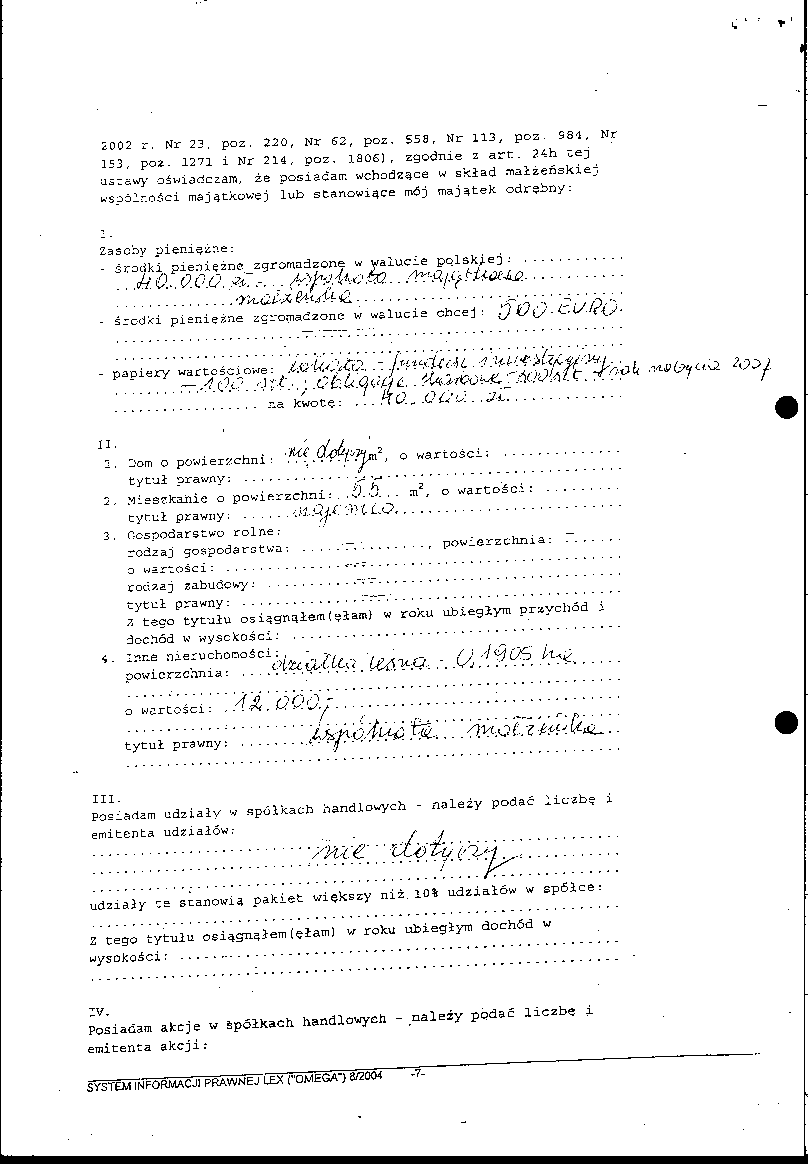 2002 r. Nr 23, poz. 220, Nr 62, poz. 558, Nr 113, poz. 984, Nr
153, poz. 1271 i Nr 214, poz. 1806), zgodnie z art. 24h tej
ustawy oświadczam, że posiadam wchodzące w skład małżeńskiej
wspólności majątkowej lub stanowiące mój majątek odrębny:
I.
Zasoby pieniężne:
- środki pieniężne zgromadzone w walucie polskiej: ............
40.000 zł - wspólnota majątkowa
małżeńska
- środki pieniężne zgromadzone w walucie obcej: 500 EURO
- papiery wartościowe: lokata - fundusz inwestycyjny
- 100 szt.; obligacje skarbowe - 300 szt. rok nabycia 2007
................ na kwotę: ...40.000 zł............
II.
1. Dom o powierzchni: nie dotyczy m², o wartości: .............
tytuł prawny: ............
2. Mieszkanie o powierzchni: ..55... m², o wartości: .........
tytuł prawny: ......najemca............
3. Gospodarstwo rolne:
rodzaj gospodarstwa: .....-........, powierzchnia: -......
o wartości: ............---............
rodzaj zabudowy: ............---............
tytuł prawny: ............---............
Z tego tytułu osiągnąłem(ęłam) w roku ubiegłym przychód i
dochód w wysokości: ............
4. Inne nieruchomości:
powierzchnia: ....działka leśna - 0,1905 ha......
o wartości: .12.000,-............
tytuł prawny: ........wspólnota małżeńska..
III.
Posiadam udziały w spółkach handlowych - należy podać liczbę i
emitenta udziałów:
nie dotyczy
udziały te stanowią pakiet większy niż 10% udziałów w spółce:
Z tego tytułu osiągnąłem(ęłam) w roku ubiegłym dochód w
wysokości: ............
IV.
Posiadam akcje w spółkach handlowych - należy podać liczbę i
emitenta akcji:
SYSTEM INFORMACJI PRAWNEJ LEX ("OMEGA") 8/2004 -7-